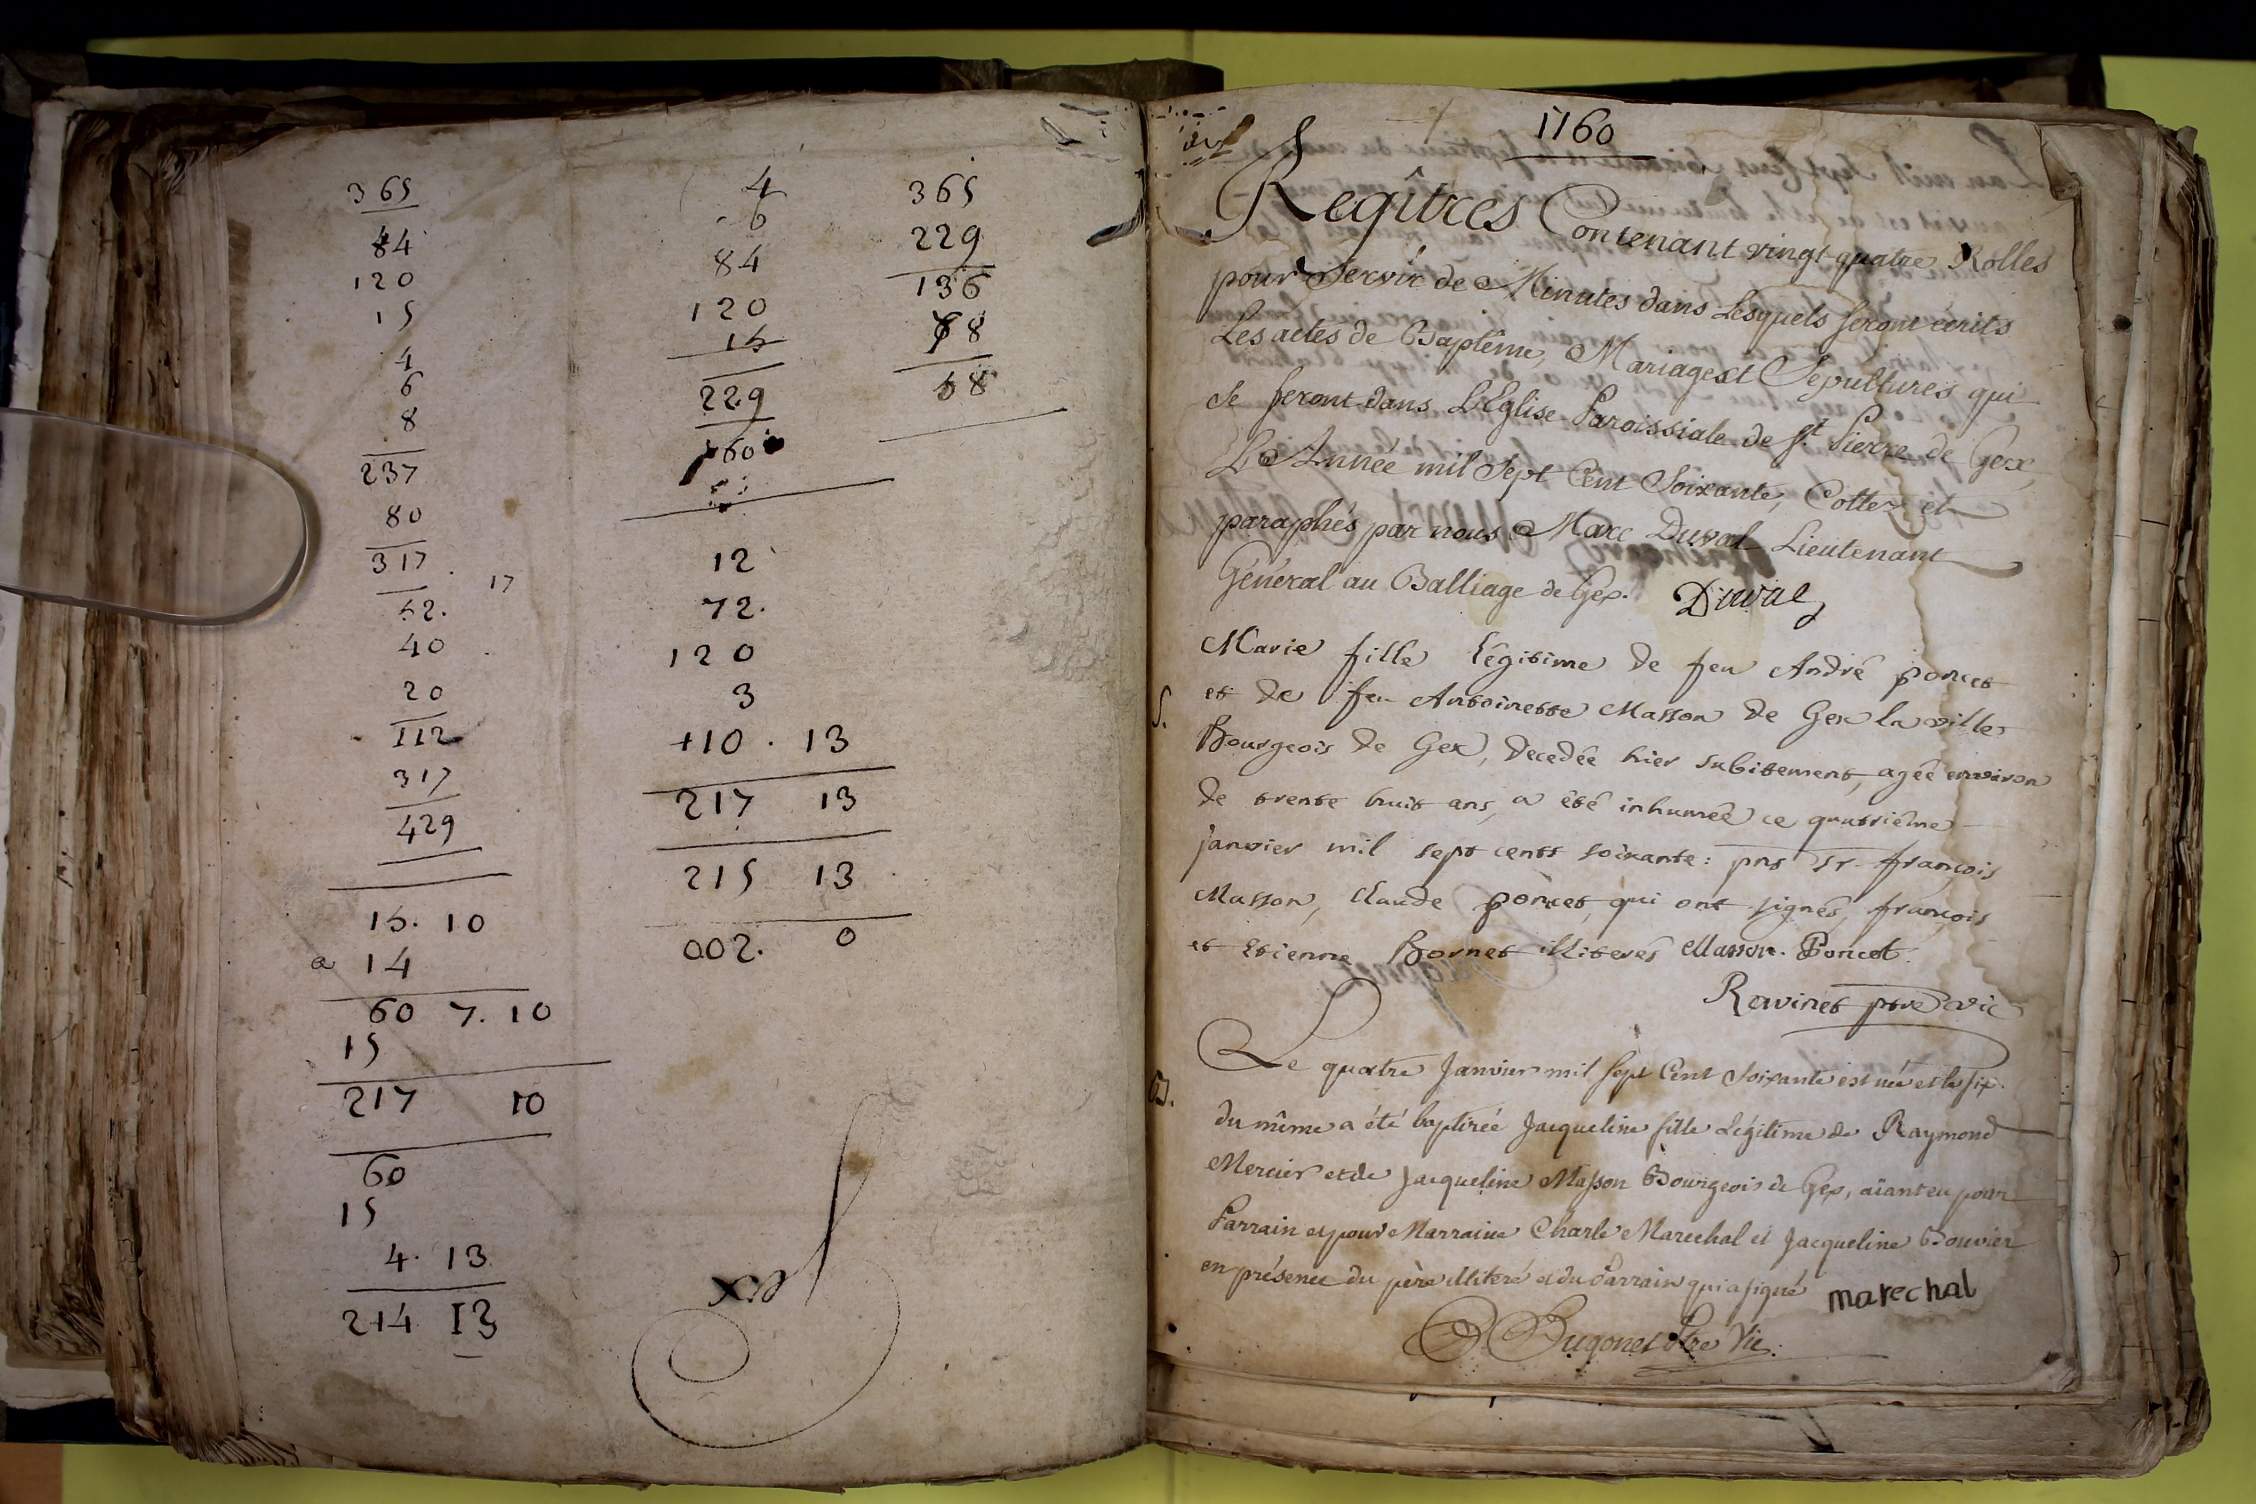 365
84
120
15
4
6
8
237
80
317 . 17
52.
40
20
112
317
429
15. 10
a 14
60 7. 10
15
217 10
60
15
4. 13
214 13
4
6
84
120
15
229
160
12
72.
120
3
+10 . 13
217 13
215 13
002. 0
365
229
136
68
68
1760
Regîtres Contenant vingt quatre Rolles
pour Servir de Minutes dans Lesquels seront ecrits
Les actes de Baptême, Mariage et Sepultures qui
se feront dans L'Eglise Paroissiale de St. Pierre de Gex,
L'Année mil Sept Cent Soixante, Cottez et
paraphés par nous Marc Duval Lieutenant
Général au Balliage de Gex. Duval
S. Marie fille légitime de feu André poncet
et de feu Antoinette Masson de Gex la ville
Bourgeois de Gex, decedée hier subitement, agée environ
de trente huit ans, a été inhumée ce quatrième
janvier mil sept cents soixante: pns sr. françois
Masson, Claude poncet, qui ont signés, françois
et Etienne Bornet illiterés Masson. Poncet.
Ravinet ptre vic
B. Le quatre Janvier mil sept Cent Soixante est née et le six
du même a été baptisée Jacqueline fille Légitime de Raymond
Mercier et de Jacqueline Masson Bourgeois de Gex, aïant eu pour
Parrain et pour Marraine Charle Marechal et Jacqueline Bouvier
en présence du père illiteré et du Parrain qui a signé marechal
Bugonet Ptre Vic.